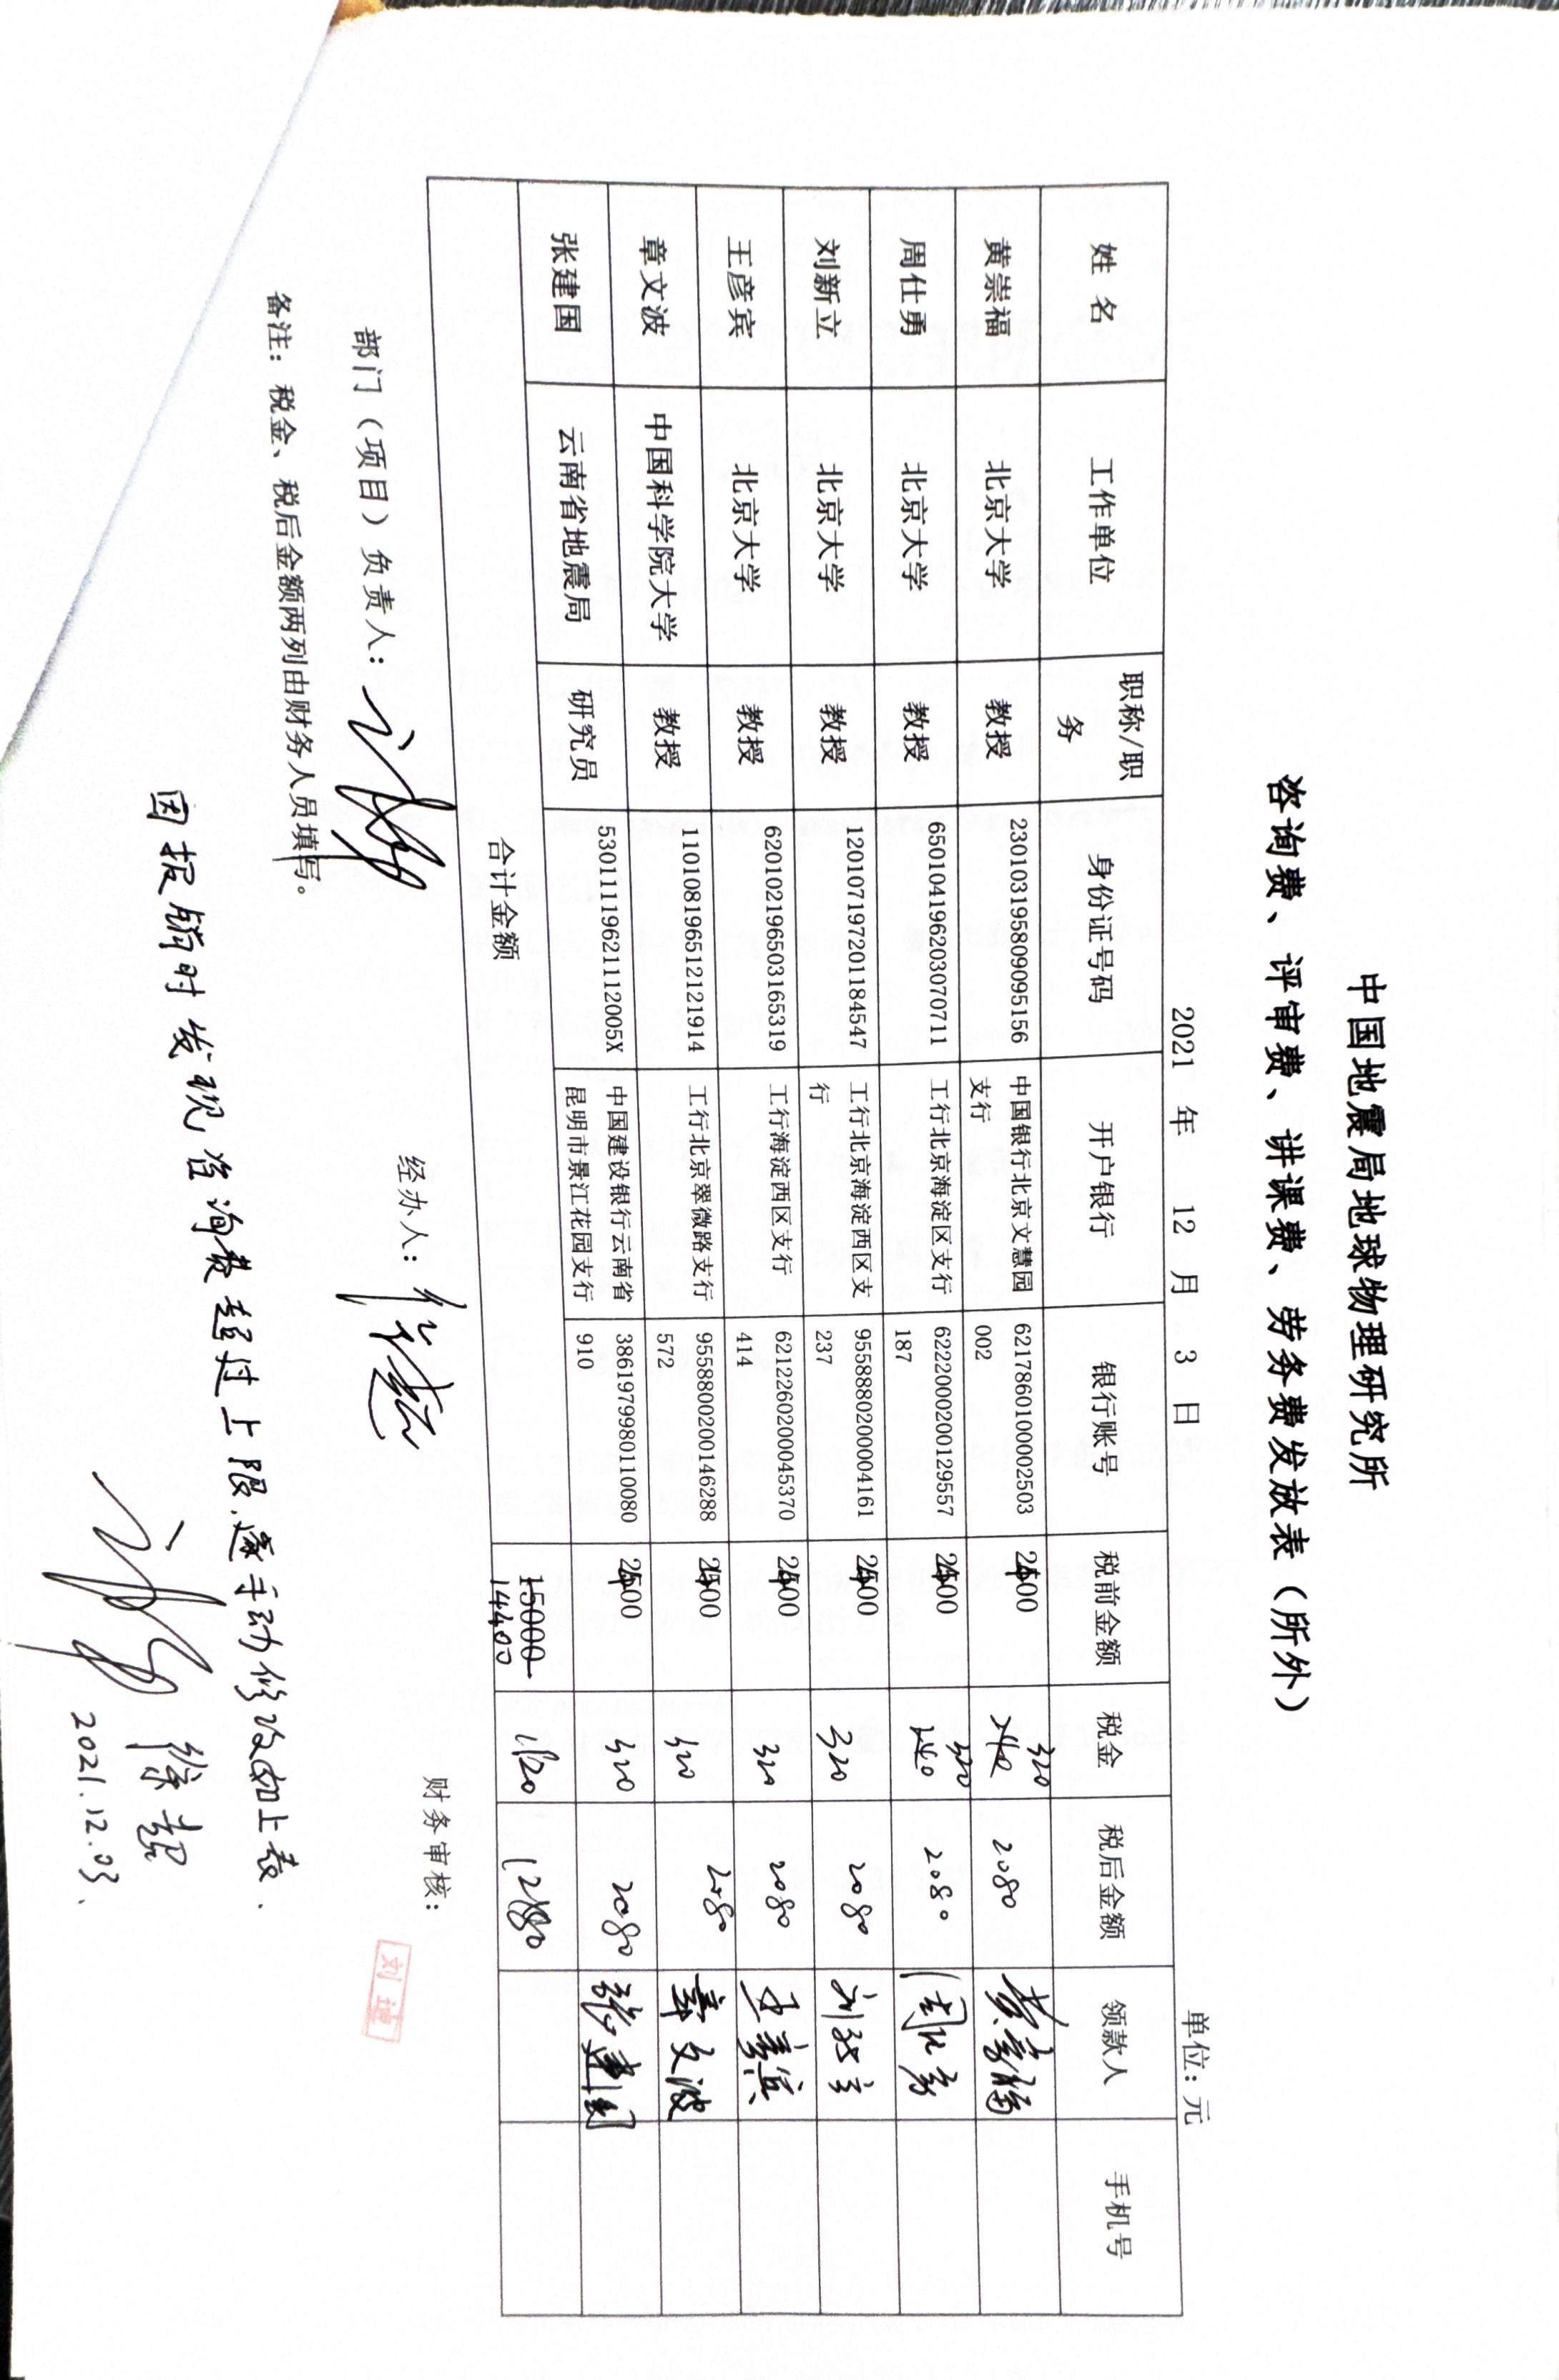 中国地震局地球物理研究所
咨询费、评审费、讲课费、劳务费发放表（所外）
2021 年 12 月 3 日 单位：元
姓 名 工作单位 职称/职务 身份证号码 开户银行 银行账号 税前金额 税金 税后金额 领款人 手机号
黄崇福 北京大学 教授 230103195809095156 中国银行北京文慧园支行 6217860100002503002 2400 240 320 2080 黄崇福
周仕勇 北京大学 教授 650104196203070711 工行北京海淀区支行 6222000200129557187 2400 240 320 2080 周仕勇
刘新立 北京大学 教授 120107197201184547 工行北京海淀西区支行 9558880200004161237 2400 320 2080 刘新立
王彦宾 北京大学 教授 620102196503165319 工行海淀西区支行 6212260200045370414 2400 320 2080 王彦宾
章文波 中国科学院大学 教授 110108196512121914 工行北京翠微路支行 9558800200146288572 2400 320 2080 章文波
张建国 云南省地震局 研究员 53011119621112005X 中国建设银行云南省昆明市景江花园支行 3861979980110080910 2400 320 2080 张建国
合计金额 15000 14400 1920 12480
部门（项目）负责人： 经办人： 徐超 财务审核：
备注：税金、税后金额两列由财务人员填写。
因报销时发现，咨询费超过上限，遂手动修改如上表.
徐超
2021.12.03.